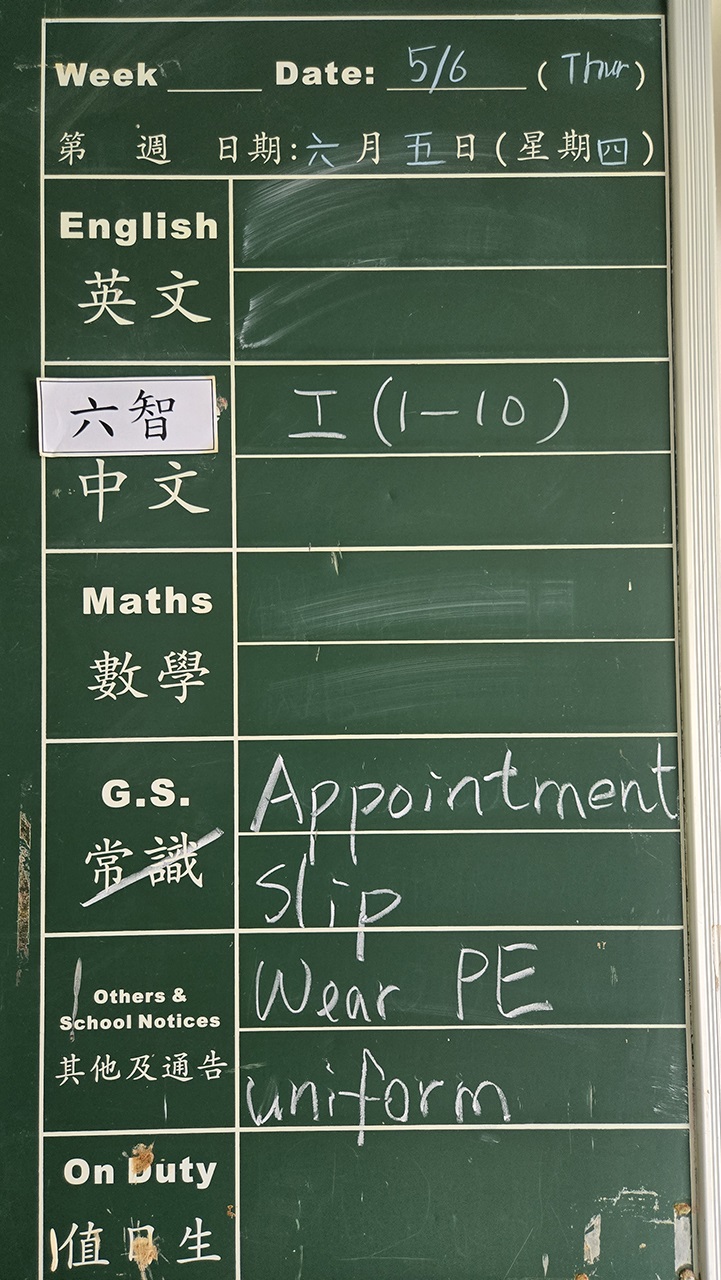 Week ____ Date: 5/6 (Thur)
第 週 日期:六月五日(星期四)
English
英文
六智
工(1-10)
中文
Maths
數學
G.S.
Appointment
常識
Slip
Others &
School Notices
Wear PE
其他及通告
uniform
On Duty
值日生